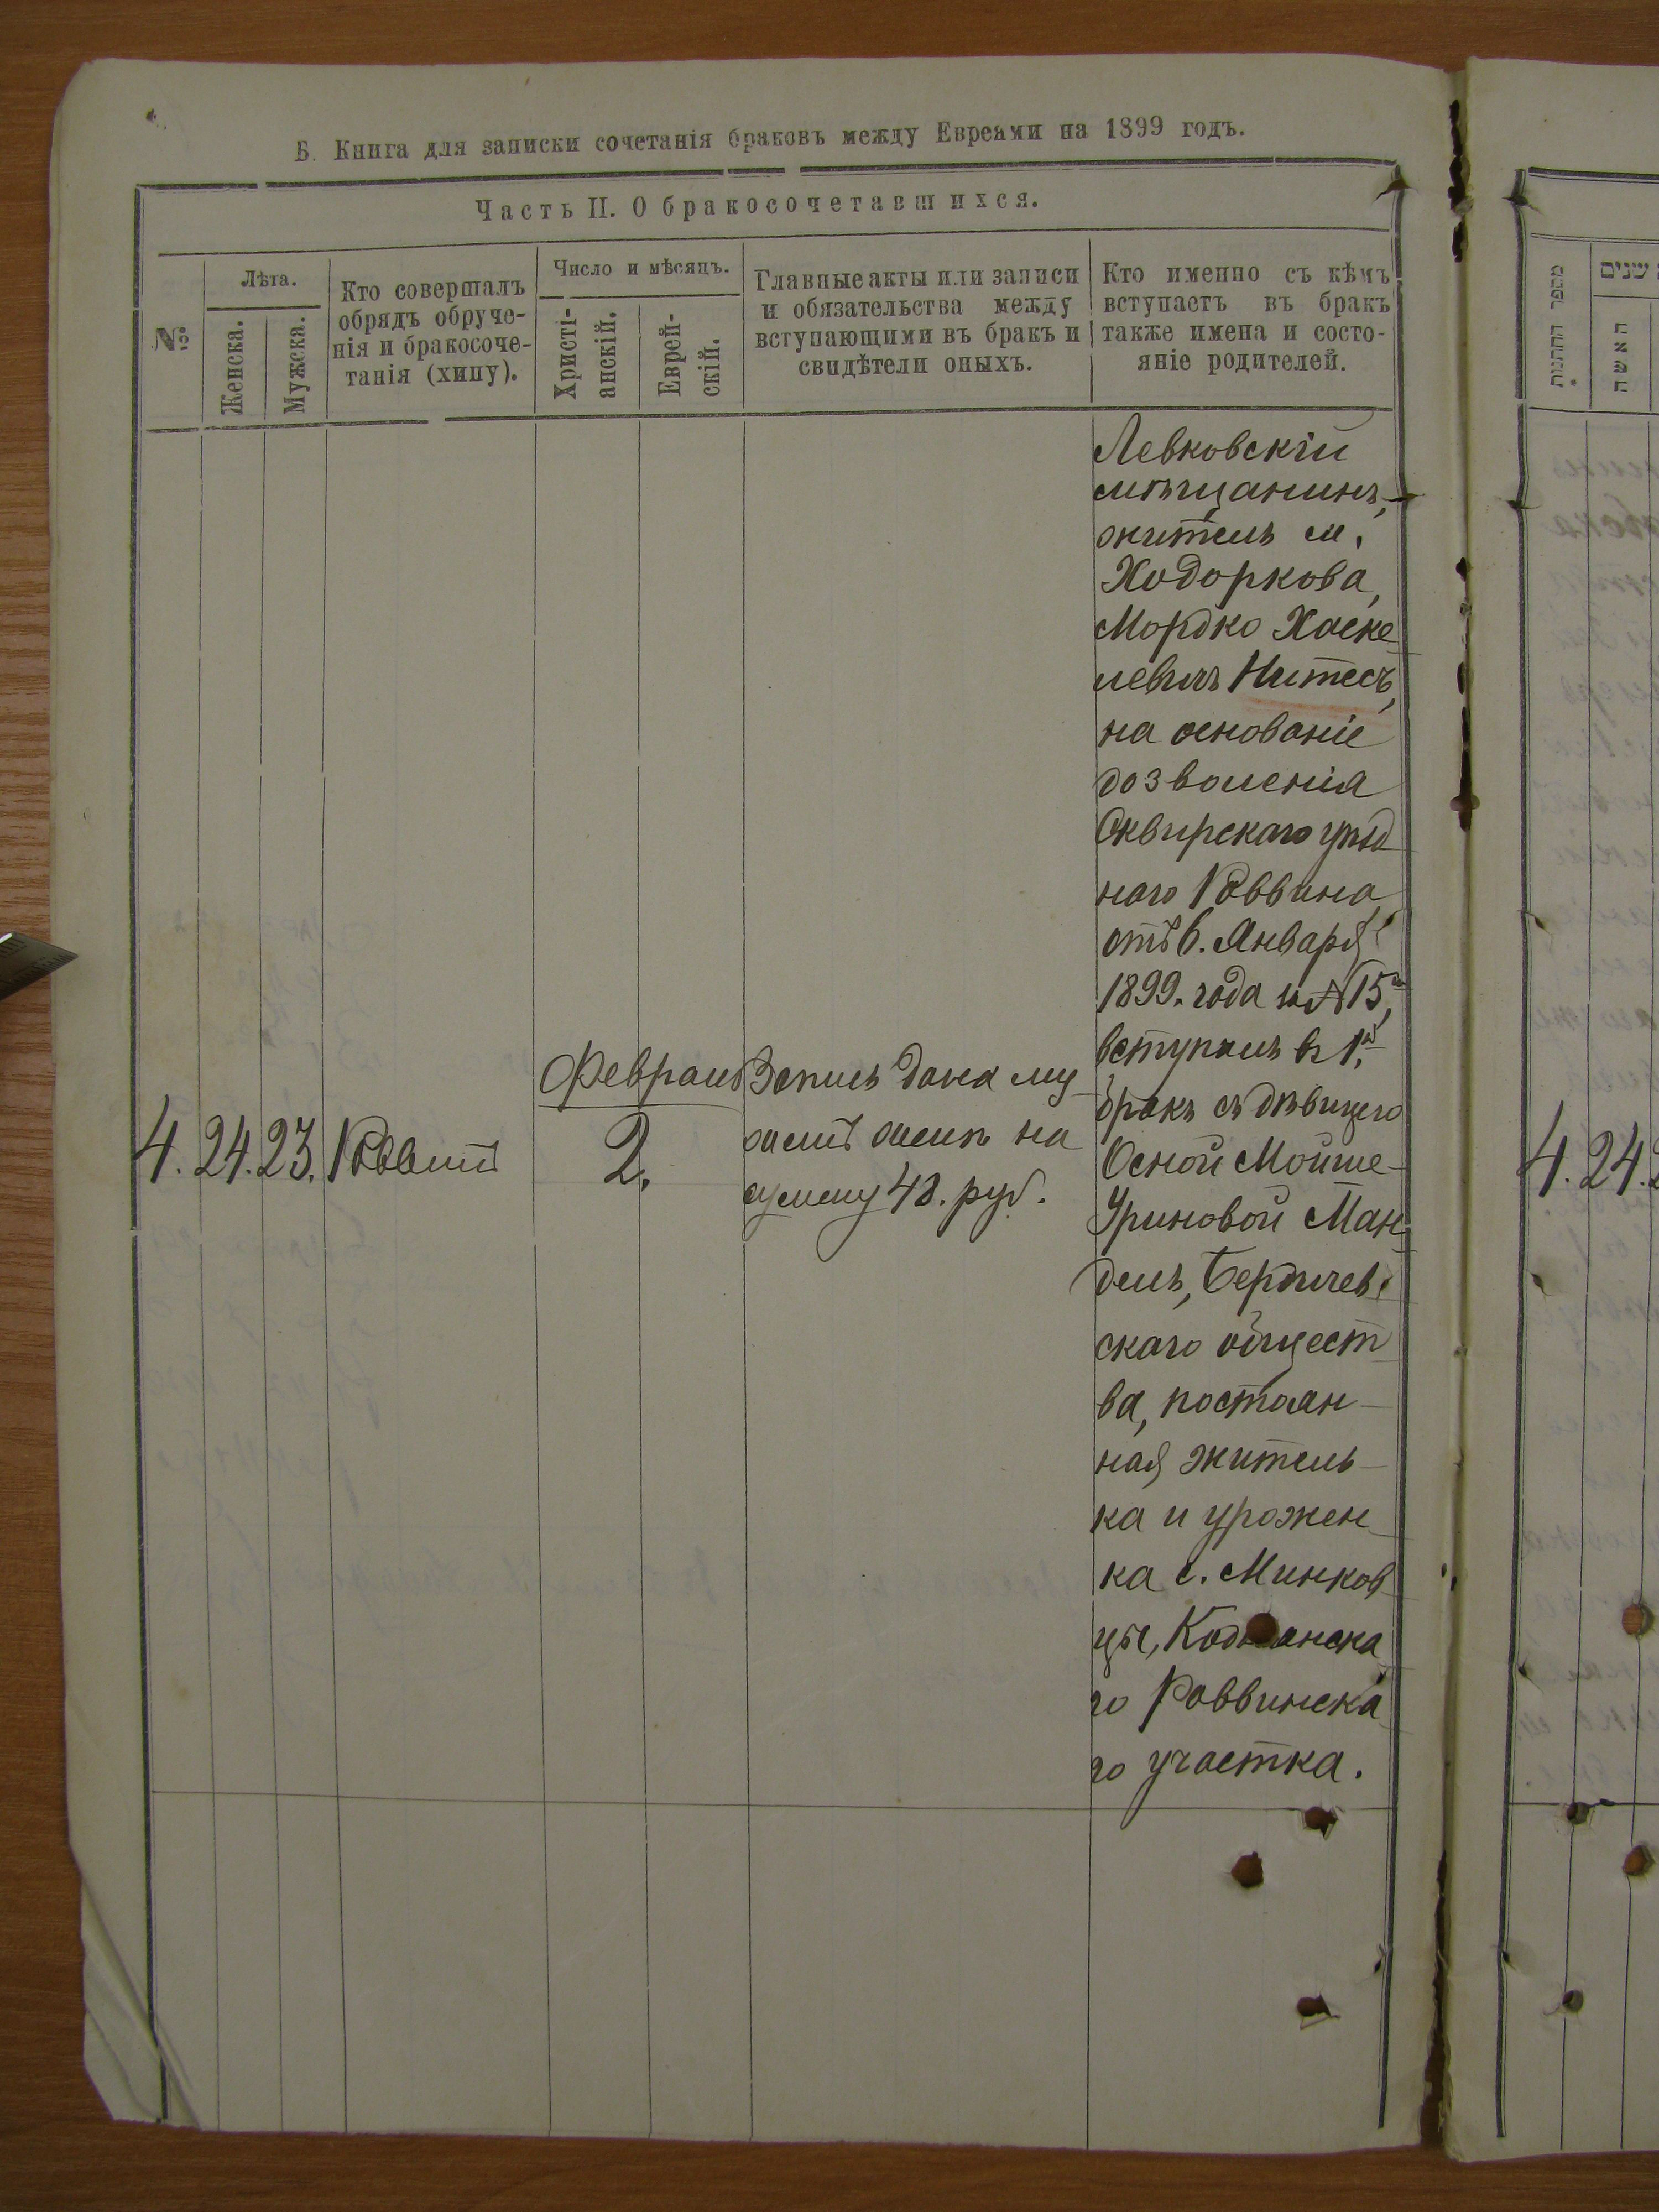 Б. Книга для записки сочетанія браковъ между Евреями на 1899 годъ.
Часть II. О бракосочетавшихся.
№
Лѣта.
Женска.
Мужска.
Кто совершалъ
обрядъ обруче-
нія и бракосоче-
танія (хипу).
Число и мѣсяцъ.
Христі-
анскій.
Еврей-
скій.
Главные акты или записи
и обязательства между
вступающими въ бракъ и
свидѣтели оныхъ.
Кто именно съ кѣмъ
вступаетъ въ бракъ
также имена и состо-
яніе родителей.
4. 24. 23. Раввинъ
Февраля
2.
Запись дана му
жемъ женѣ на
сумму 48. руб.
Левковскій
мѣщанинъ,
житель м.
Ходоркова,
Мордко Хаске
левичъ Нитесъ,
на основаніе
дозволенія
Сквирскаго уѣзд
наго Раввина,
отъ 6. Января
1899. года за № 15,
вступилъ въ 1й
бракъ съ дѣвицею
Осной Мойше-
Уриновой Ман
дель, Бердичев-
скаго общест
ва, постоян-
ная житель-
ка и урожен
ка с. Минков
цы,
го Раввинска
го участка.
מספר החתונות
שנים
האשה
4. 24.